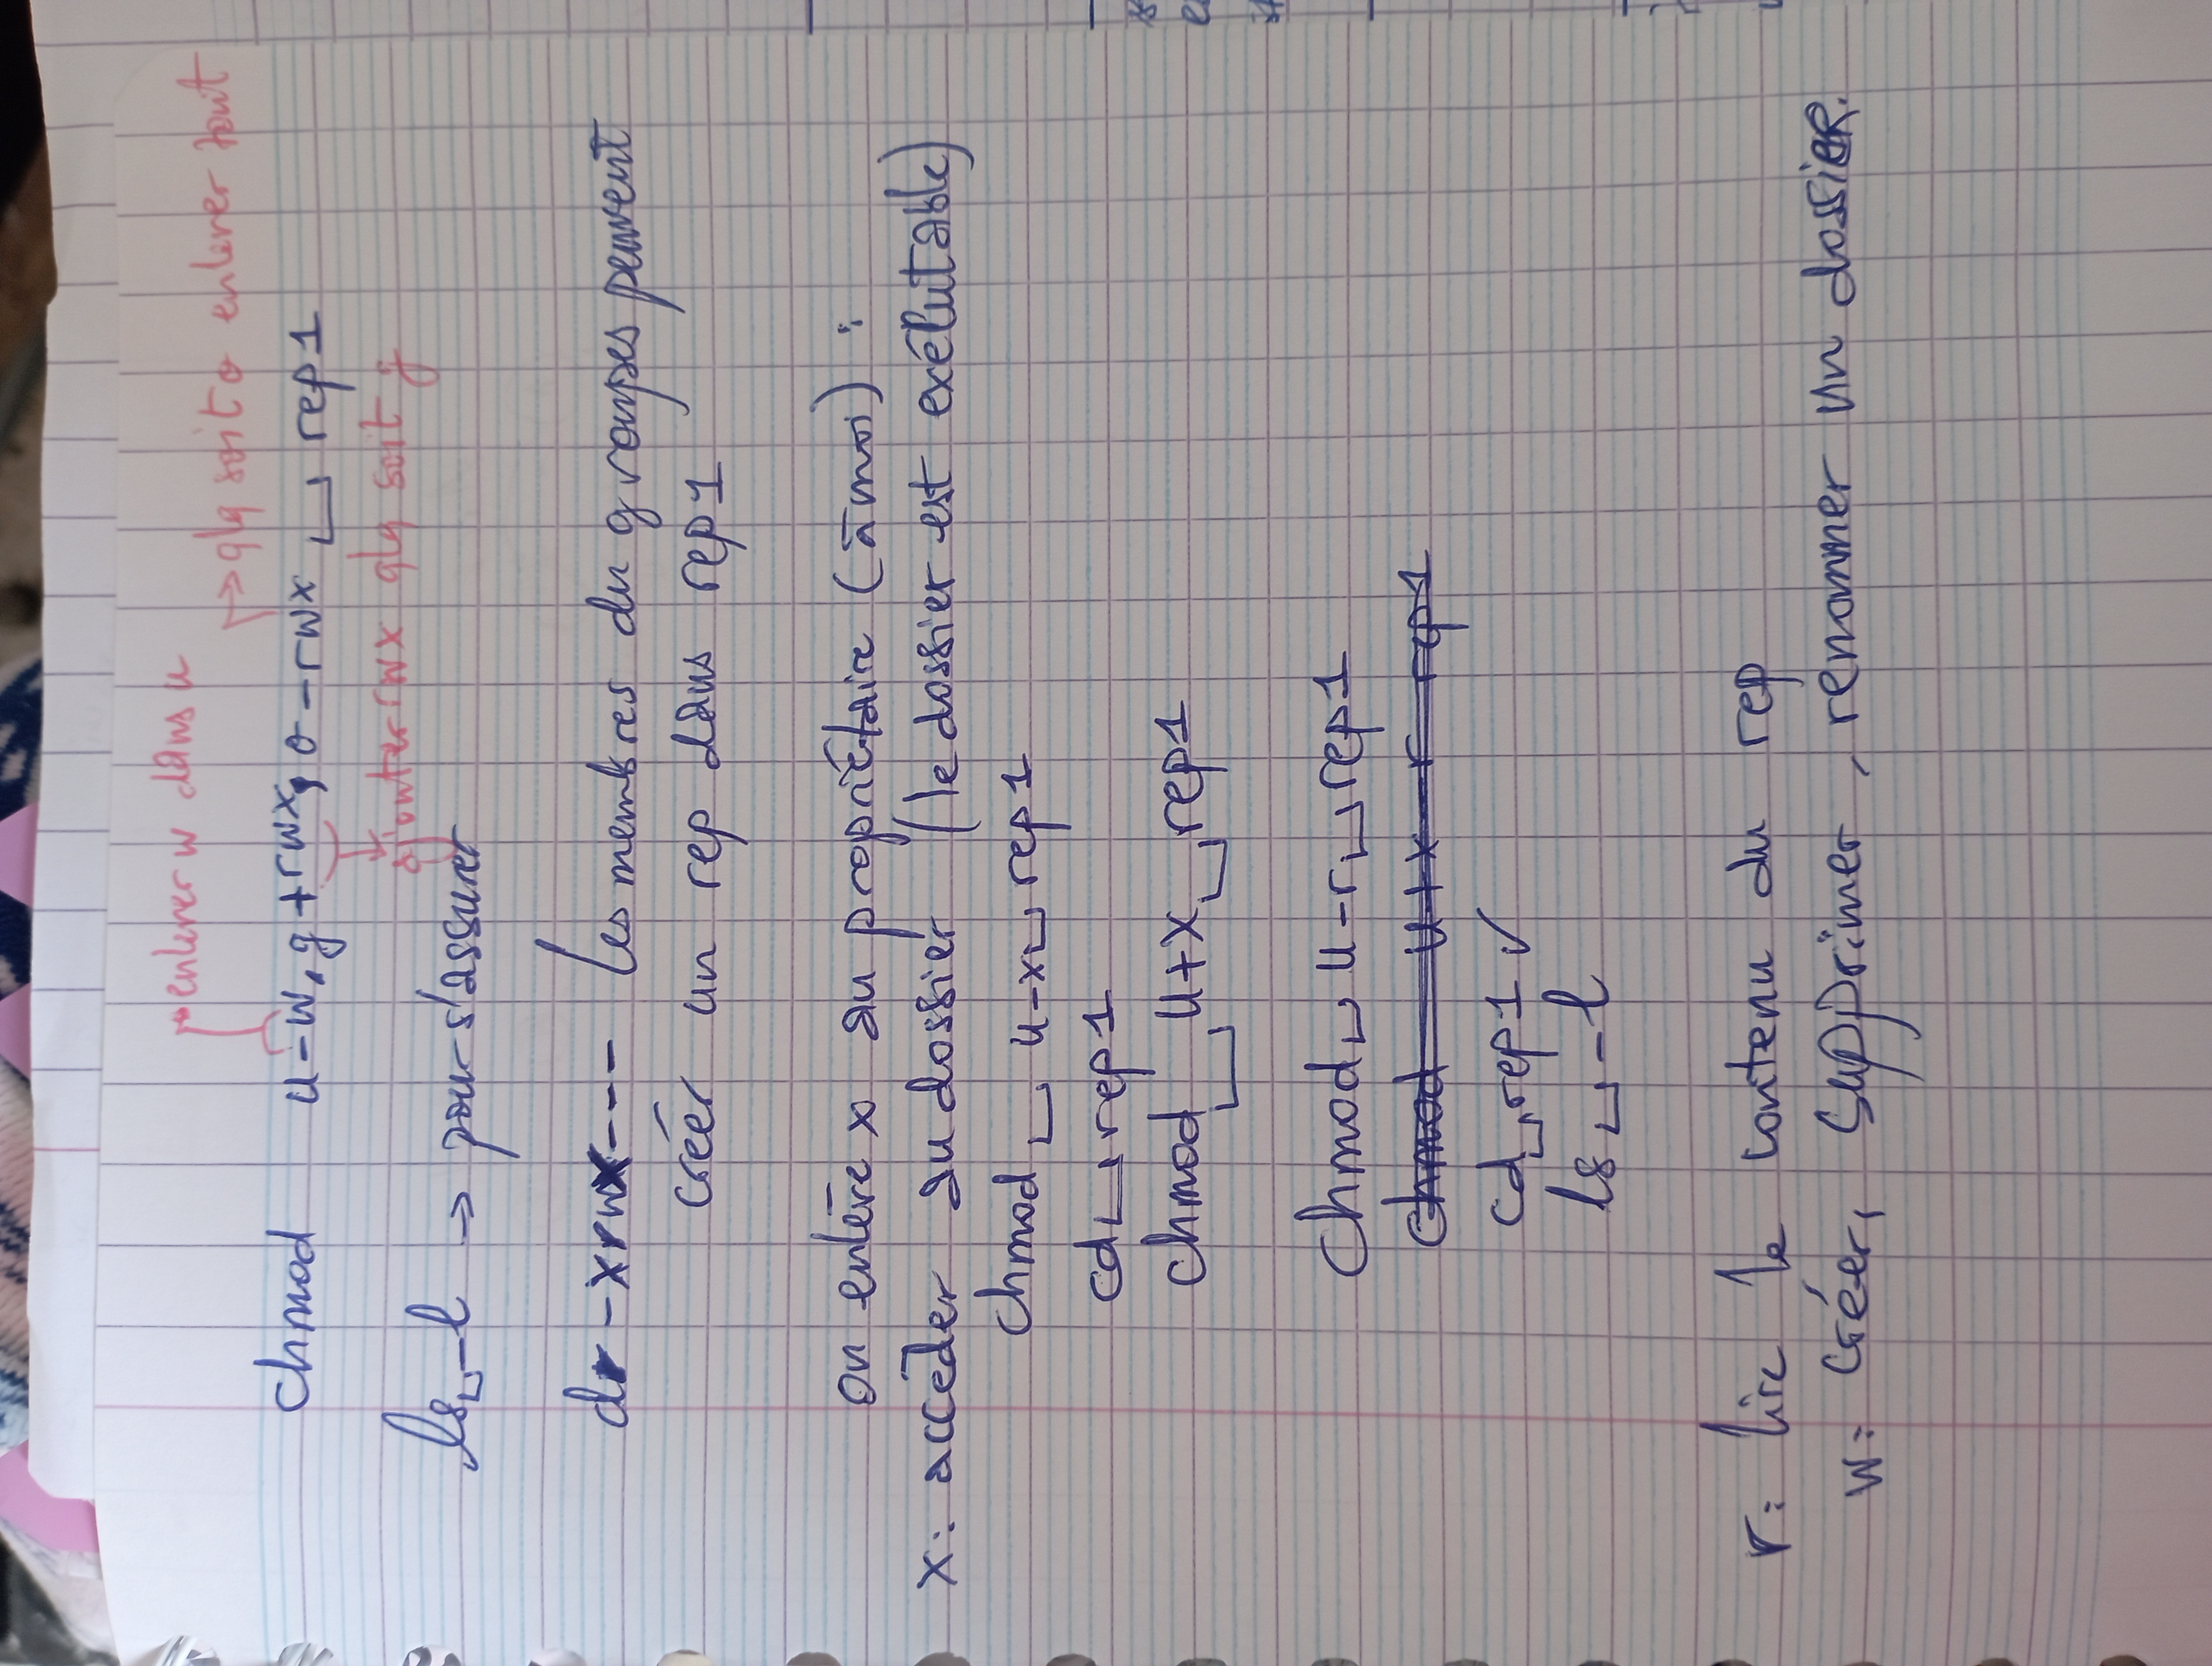 enlever w dans u
qlq soit o enlever tout
chmod u-w,g+rwx,o-rwx ␣ rep1
ajouter rwx qlq soit g
ls␣-l → pour s'assurer
dr-xrwx--- Les membres du groupes peuvent
créer un rep dans rep1
on enlève x au propriétaire (à moi) :
x: accéder au dossier (le dossier est exécutable)
chmod␣u-x␣rep1
cd␣rep1
chmod␣u+x␣rep1
chmod␣u-r␣rep1
chmod u+x-r rep1
cd␣rep1 ✓
ls␣-l
r: lire le contenu du rep
w: créer, supprimer, renommer un dossier.